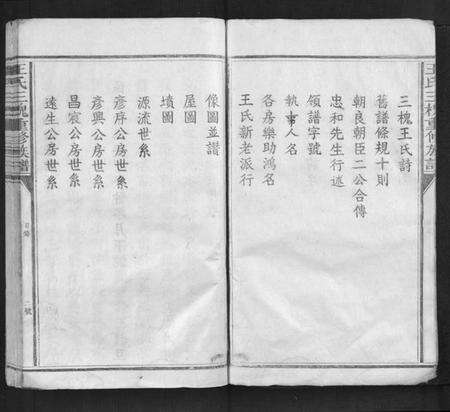 三槐王氏詩
舊譜條規十則
朝良朝臣二公合傳
忠和先生行述
領譜字號
執事人名
各房樂助鴻名
王氏新老派行
像圖並譜
屋圖
墳圖
源流世系
彥序公房世系
彥興公房世系
昌宸公房世系
遠生公房世系
王氏三槐重修族譜
目錄
二號
王氏三槐重修族譜